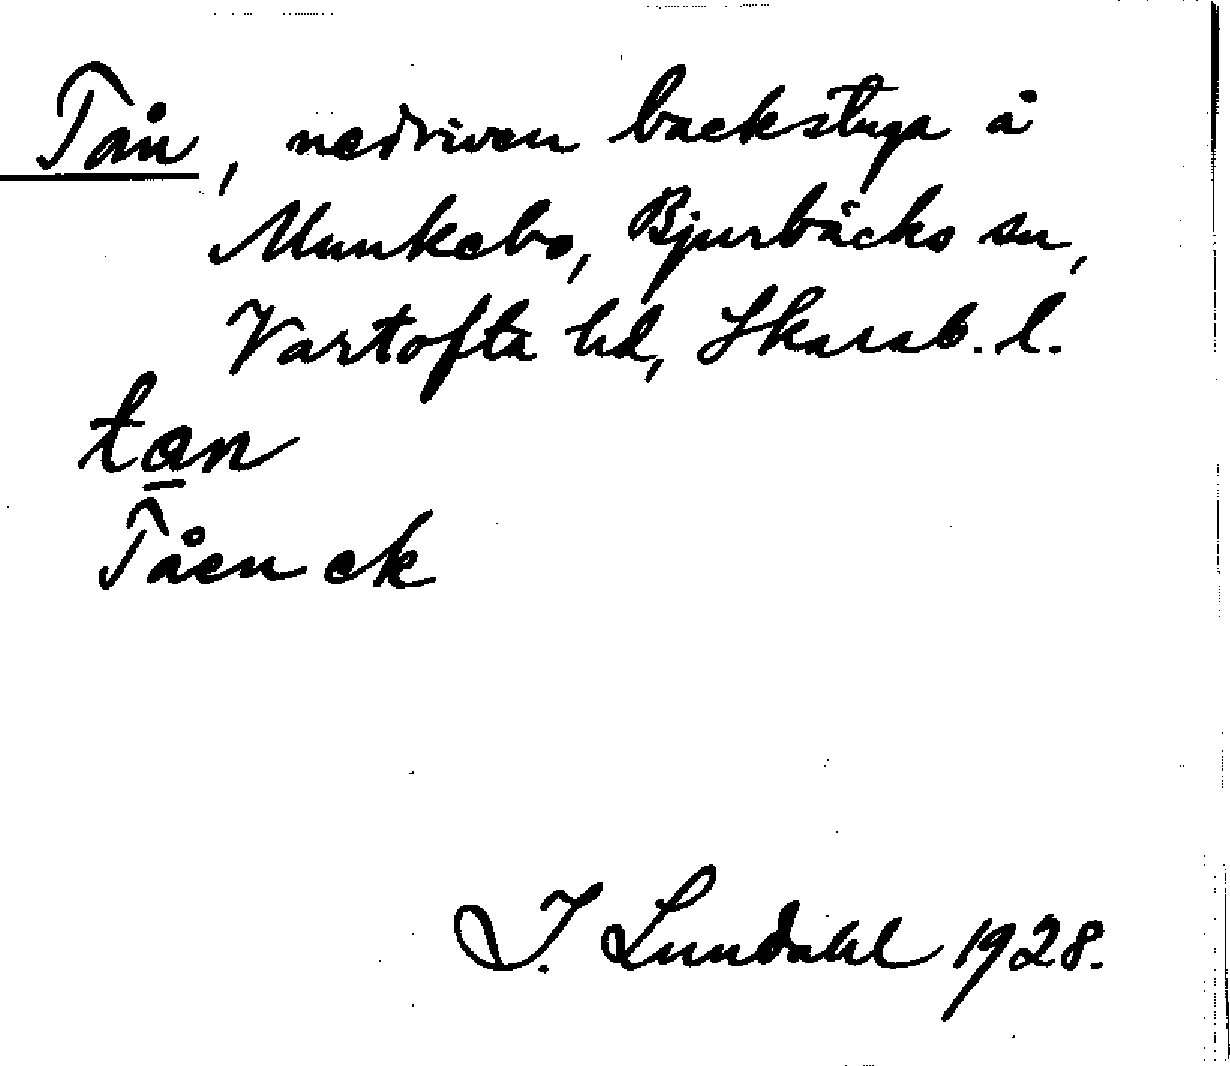 Tån, nedriven backstuga å
Munkebo, Bjurbäcks sn,
Vartofta hd, Skarab. l.
tan
Tåen ek
I. Lundahl 1928.